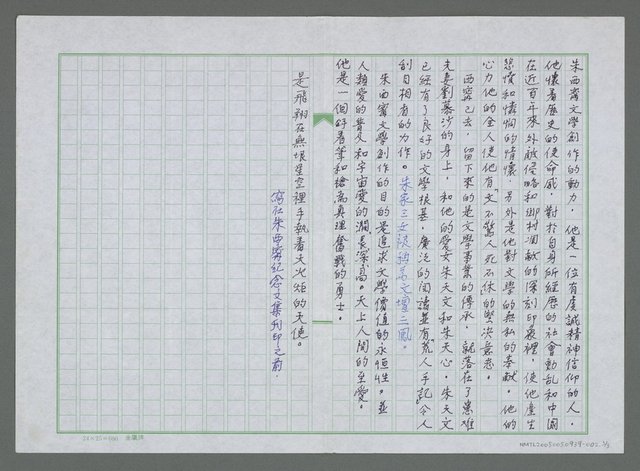 朱西甯文學創作的動力，他是一位有虔誠精神信仰的人，
他懷着歷史的使命感，對於自身所經歷的社會動亂和中國
在近百年來外敵侵略和鄉村凋敝的深刻印象裡，使他產生
悲憤和憐憫的情懷。另外是他對文學的無私的奉獻，他的
心力他的全人使他有「文不驚人死不休」的堅決意志。
西甯已去，留下來的是文學事業的傳承，就落在了患難
夫妻劉慕沙的身上，和他的愛女朱天文和朱天心，朱天文
已經有了良好的文學根基，廣泛的閱讀並有「荒人手記」令人
刮目相看的力作。朱家三女被稱為文壇三鳳。
朱西甯文學創作的目的是追求文學價值的永恒性。並
人類愛的普及和宇宙愛的瀾長深高。天上人間的至愛。
他是一個好着筆和槍為真理奮戰的勇士。
是飛翔在無垠星空裡手執着天火炬的天使。
寫在朱西甯紀念文集刊印之前．
24×25=600 金蘭牌
NMTL20050050939-002 3/3